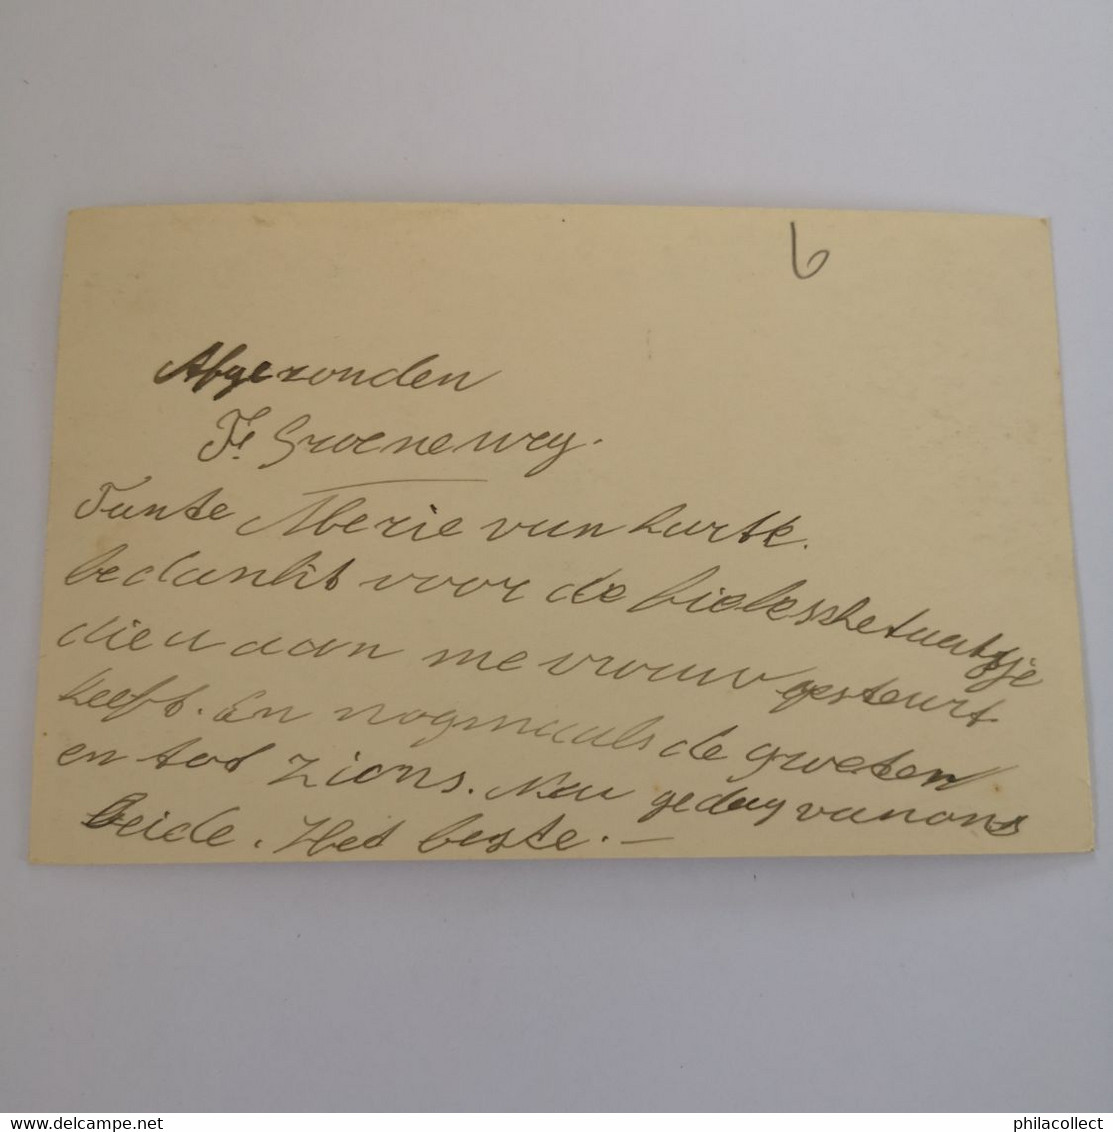 6
Afgezonden
Fr Groeneweg.
Tante Merie van harte.
bedankt voor de
die u aan mevrouw gesteurt
heeft. En nogmaals de groeten
en tot ziens. Nou gedag van ons
Beide. Het beste. —
delcampe.net
philacollect